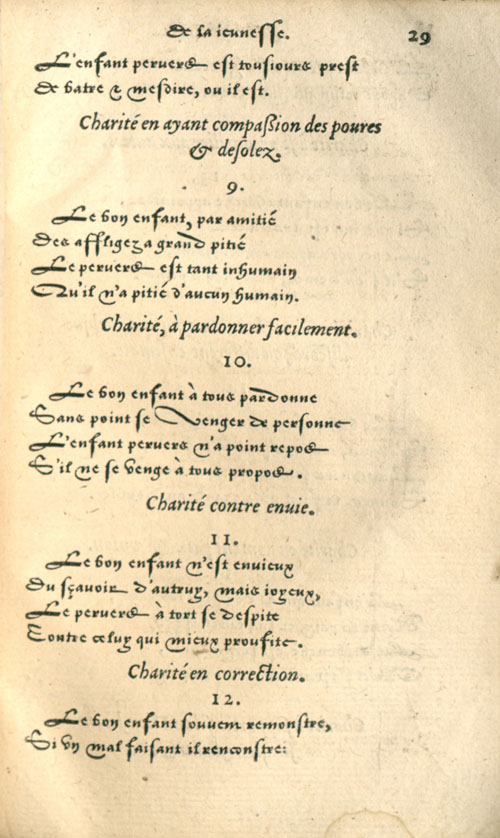 de la ieunesse. 29
L'enfant pervers est tousiours prest
De batre & mesdire, ou il est.
Charité en ayant compaßion des poures
& desolez.
9.
Le bon enfant, par amitié
Des affligez a grand pitié
Le pervers est tant inhumain
Qu'il n'a pitié d'aucun humain.
Charité, à pardonner facilement.
10.
Le bon enfant à tous pardonne
Sans point se venger de personne
L'enfant pervers n'a point repos
S'il ne se venge à tous propos.
Charité contre enuie.
11.
Le bon enfant n'est envieux
Du sçavoir d'autruy, mais ioyeux,
Le pervers à tort se despite
Contre celuy qui mieux proufite.
Charité en correction.
12.
Le bon enfant souvent remonstre,
Si vn mal faisant il renconstre: